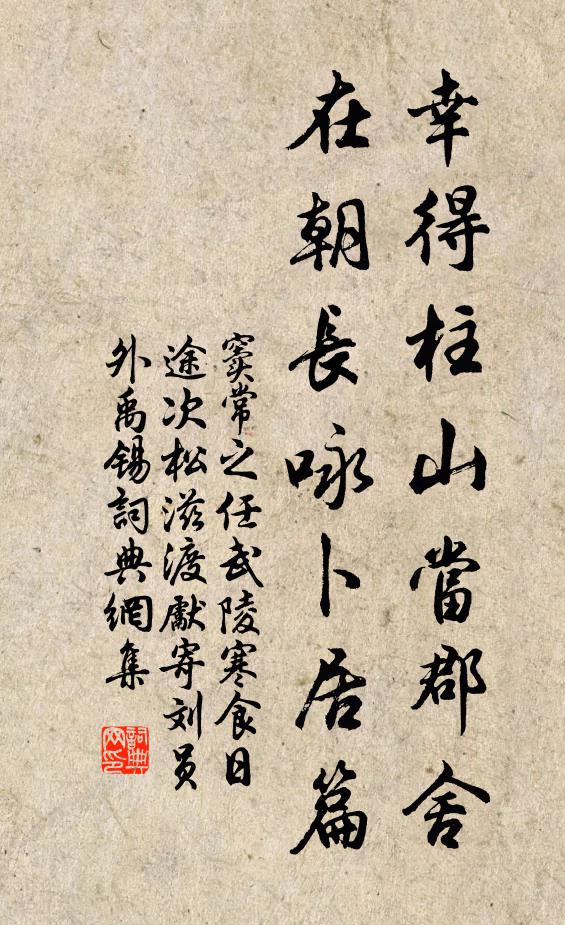 幸得柱山當郡舍
在朝長咏卜居篇
窦常之任武陵寒食日
途次松滋渡獻寄刘员
外禹锡詞典網集
詞典
网印